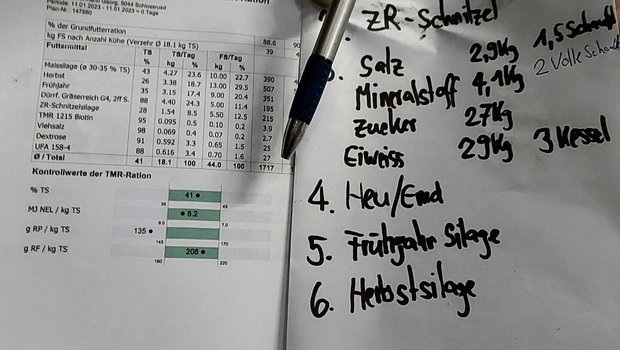 Periode: 11.01.2023 - 11.01.2023 = 0 Tage
Plan-Nr.: 147560
% der Grundfutterration
kg FS nach Anzahl Kühe (Verzehr Ø 18.1 kg TS) 88.6
Futtermittel TS % TS/Tag kg % FS/Tag kg %
Maissilage (ø 30-35 % TS) 43 4.27 23.6 10.00 22.7 390
Herbst 26 3.38 18.7 13.00 29.5 507
Frühjahr 35 3.15 17.4 9.00 20.4 351
Dürrf. Gräserreich G4, 2ff S. 88 4.40 24.3 5.00 11.4 195
ZR-Schnitzelsilage 28 1.54 8.5 5.50 12.5 215
TMR 1215 Biotin 95 0.095 0.5 0.10 0.2 3.9
Viehsalz 98 0.069 0.4 0.07 0.2 2.7
Dextrose 91 0.592 3.3 0.65 1.5 25
UFA 158-4 88 0.616 3.4 0.70 1.6 27
Ø / Total 41 18.1 100 44.0 100 1717
Kontrollwerte der TMR-Ration
% TS 41
35 45
MJ NEL / kg TS 6.2
6.0 7.0
g RP / kg TS 135
145 170
g RF / kg TS 206
180 220
ZR-Schnitzel
Salz 2,9Kg 1,5
Mineralstoff 4,1Kg 2 Volle
Zucker 27Kg
Eiweiss 29Kg 3 Kessel
4. Heu/Emd
5. Frühjahr Silage
6. Herbstsilage